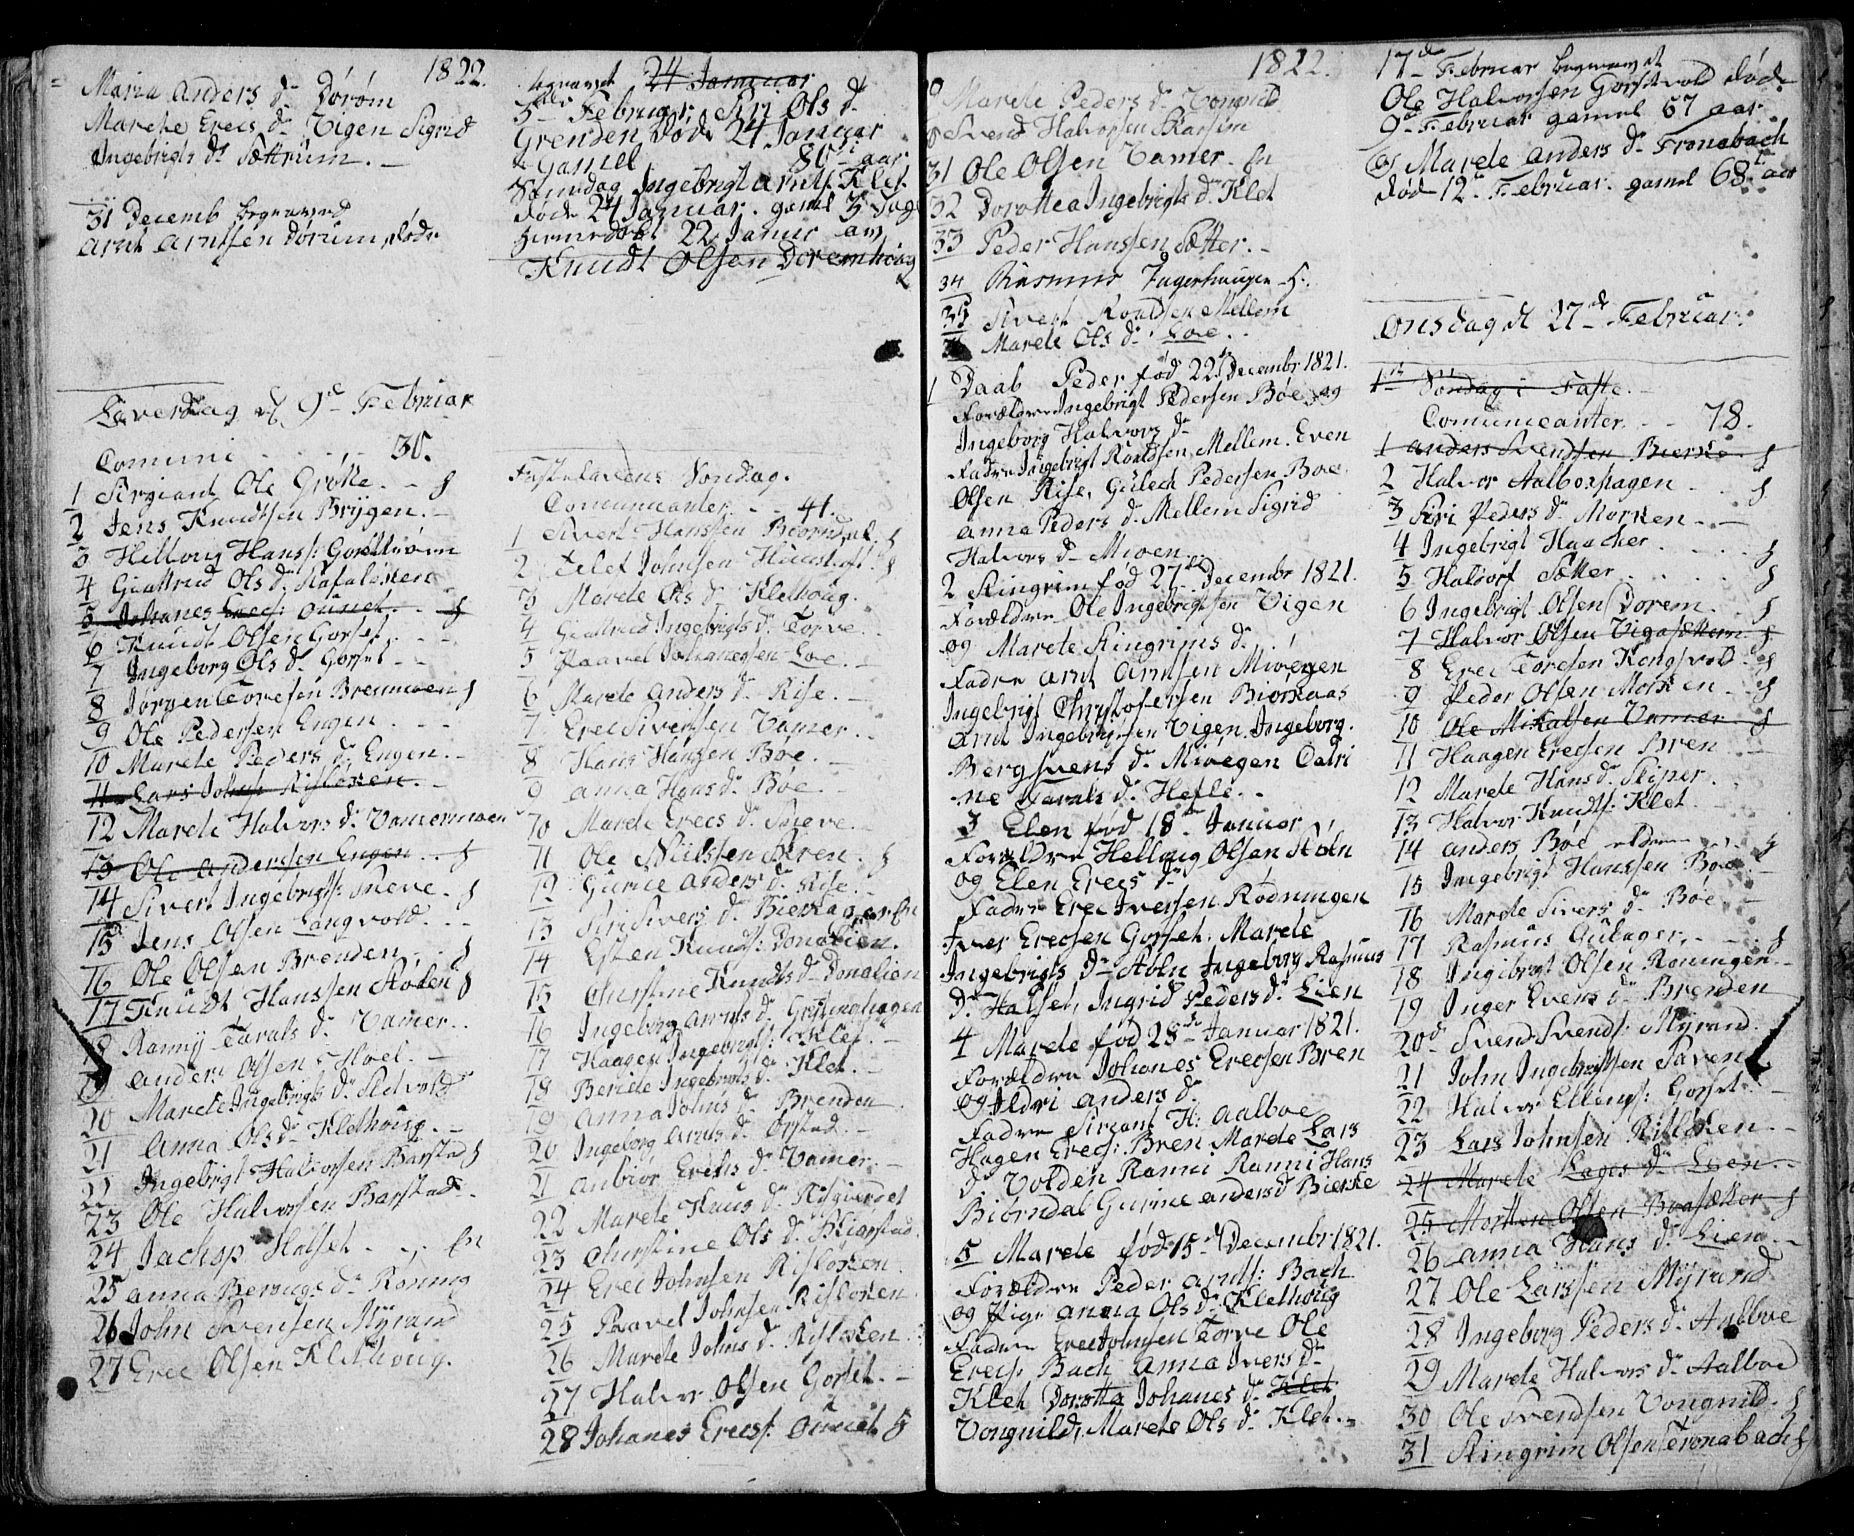 1822.
Maria Anders d. Dørøm
Marete Erecs d. Vigen Sigrid
Ingebrigts d. Sættrum. -
31 Decemb begraved
Arnt Arntsen Dorum, døde
Løverdag d. 9d. Februar
Comuni . . . . 30.
1 Sergiant Ole Grøtte. - f
2 Jens Knudtsen Brygen. -
3 Hellvug Hans:
4 Giøttrud Ols d.
5 Johanes Erecs: Ouniet. - f
6 Knudt Olsen Gorset. . -
7 Ingeborg Ols d. Gorset - -
8 Jørgen Toresen Brennmoen f
9 Ole Pedersen Engen . - -
10 Marete Peders d. Engen. -
11 Lars Johns: Risløken. -
12 Marete Halvors d. Vamermoen
13 Ole Anderssen Engen . . f
14 Sivert Ingebrigts: Sneve. - f
15 Jens Olsen Langvold. . -
16 Ole Olsen Brenden . . f
17 Knudt Hanssen Stølen f
18 Ranny Tarals d. Vamer. .
19 Anders Olsen Hoel. -
20 Marete Ingebrigts d.
21 Anna Ols d. Klethoug. -
22 Ingebrigt Halvorsen Barstad f
23 Ole Halvorsen Barstad -
24 Jachop Halset . . . fn
25 Anna d. Røning
26 John Svensen Myrand
27 Erec Olsen Klethoug.
begravet 24 Januar
5te Februar, Siri Ols d.
Grenden døde 24 Januar
Gamel 80 - aar
Søndag Ingebrigt Arnts. Klet
døde 24 Januar. gaml 3 dage
hiemedøbt 22 Januar av
Knudt Olsen Doremhoug
Fastelavens Søndag.
Comunicanter - - 41.
1 Sivert Hanssen Biørndal. f
2 Johnsen f
3 Marete Ols d. Klethoug.
4 Giøttrud Ingebrigts d. Torve -
5 Paavel Johanessen Loe. -
6 Marete Anders d. Rise. -
7 Erec Sivertsen Vamer. -
8 Hans Hansen Boe. -
9 Anna Hans d. Bøe.
10 Marete Erecs d. Sneve. -
11 Ole Niilssen Bren. f
12 Gurie Anders d. Rise. -
13 Siri Sivers d. Bierkager fn
14 Esten Knuds: Donalien.
15 Christine Knuds d. Donalien
16 Ingeborg Arnts d.
17 Haagen Ingebrigts: Klet. -
18 Berete Ingebrigts d. Klet. -
19 Anna Johns d. Brenden.
20 Ingeborg Arnts d. Ørstad. -
21 Anbior Erecks d. Vamer. -
22 Marete Knus d.
23 Christine Ols d.
24 Erec Johnsen Risløken.
25 Paavel Johnsen Risløken.
26 Marete Johns d. Risløken.
27 Halvor Olsen Gorset. -
28 Johanes Erecs: Ouniet f
1822.
Marete Peders d.
Svend Halvorsen
31 Ole Olsen Vamer. fn
32 Dorottea Ingebrigts d. Klet
33 Peder Hanssen Sætter. -
34 Rasmus Jagerhaugen f.
35 Sivert Roaldsen Mellem
Marete Ols d. Loe. .
1 Daab Peder fød 22de Decembr 1821.
Forældre Ingebrigt Pedersen Bøe og
Ingeborg Halvors d.
Fadre Ingebrigt Roaldsen Mellem. Even
Olsen Rise, Gulech Pedersen Boe
Anna Peders d. Mellem Sigrid
Halvors d. Mioen
2 Stingrim fød 27de Decembr 1821.
Forældre Ole Ingebrigtsen Vigen
og Marete Stingrims d.
Fadre Arnt Arntsen Mivegen
Ingebrigt Christofersen Biørkaas
Arnt Ingebrigtsen Vigen, Ingeborg.
Bergsvens d. Mivegen Catri
ne Tarals d. Hefle. -
3 Elen fød 18de Januar
Forældre Hellvug Olsen Støln
og Elen Erecs d.
Fadre Erec Iversen Rødningen
Iver Erecsen Gorset. Marete
Ingebrigts d. Støln Ingeborg Rasmus
d. Halset, Ingrid Peders d. Lien
4 Marete fød 28de Januar 1821.
Forældre Johanes Erecsen Bren
og Ildri Anders d.
Fadre Siriant H: Aalboe
Hagen Erecs: Bren Marete Lars
d. Volden Ranni Ranni Hans
Biørndal Gurine Anders d. Bierke
5 Marete fød 15d. Decembr 1821.
Forældre Peder Arnts: Bach
og Pige Anna Ols d. Klethoug
Fadre Erec Johnsen Torve Ole
Erecs Bach Anna Ivers d.
Klet Dorotta Johanes d. Klet
Vongnild, Marete Ols d. Klet. -
17d. Februar begravet
Ole Halvorsen Gorsetvold død
9d. Februar gamel 67 aar
og Marete Anders d. Tronsbach
død 12te Februar. gamel 68 aar
Onsdag d. 27de Februar.
1te Søndag i Faste. -
Comunicanter - - 78.
1 Anders Svendsen Bierke - f
2 Halvor Aalboshagen . . f
3 Siri Peders d. Morken - . -
4 Ingebrigt Haacker . . . . f
5 Haldorf Sætter . . . . . f
6 Ingebrigt Olsen Dorem. . f
7 Halvor Olsen Vigasættem f
8 Erec Toresen Kongsvold - f
9 Peder Olsen Morken - - f
10 Ole Mikalsen Vamer - f
11 Haagen Erecsen Bren
12 Marete Hans d. Skiper.
13 Halvor Knudts: Klet.
14 Anders Bøe eldre . . . f
15 Ingebrigt Hanssen Boe. -
16 Marete Sivers d. Bøe. -
17 Rasmus Aulager. . . . f
18 Ingibrigt Olsen Roningen -
19 Inger Evens d. Brenden
20 Svend Svends: Myrand.
21 John Ingebrigtsen Saven f
22 Halvor Ellings: Gorset. -
23 Lars Johnsen Risløken -
24 Marete Lages d. Lien. -
25 Morthen Olsen Boasætter f
26 Anna Hans d. Lien -
27 Ole Larssen Myrand
28 Ingeborg Peders d. Aalboe
29 Marete Halvors d. Aalboe
30 Ole Svendsen Vongnild. f
31 Stingrim Olsen Tronsbach f